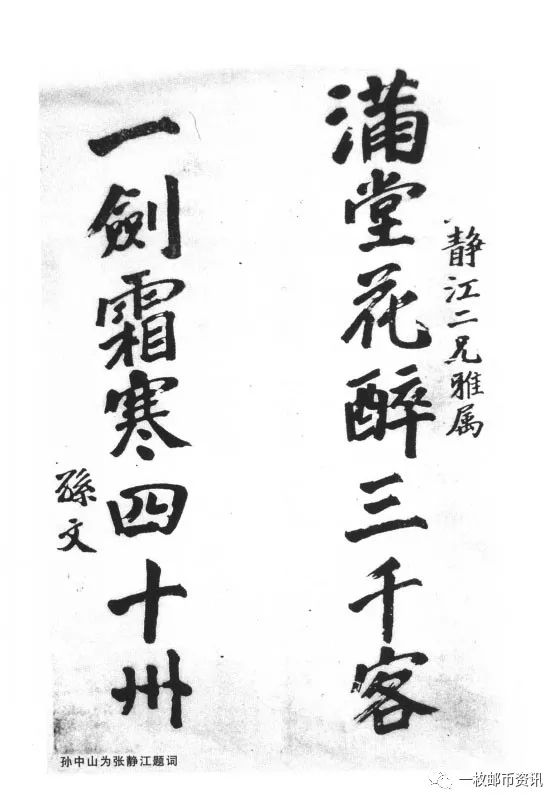 静江二兄雅属
满堂花醉三千客
一劍霜寒四十州
孫文
孙中山为张静江题词
一枚邮币资讯